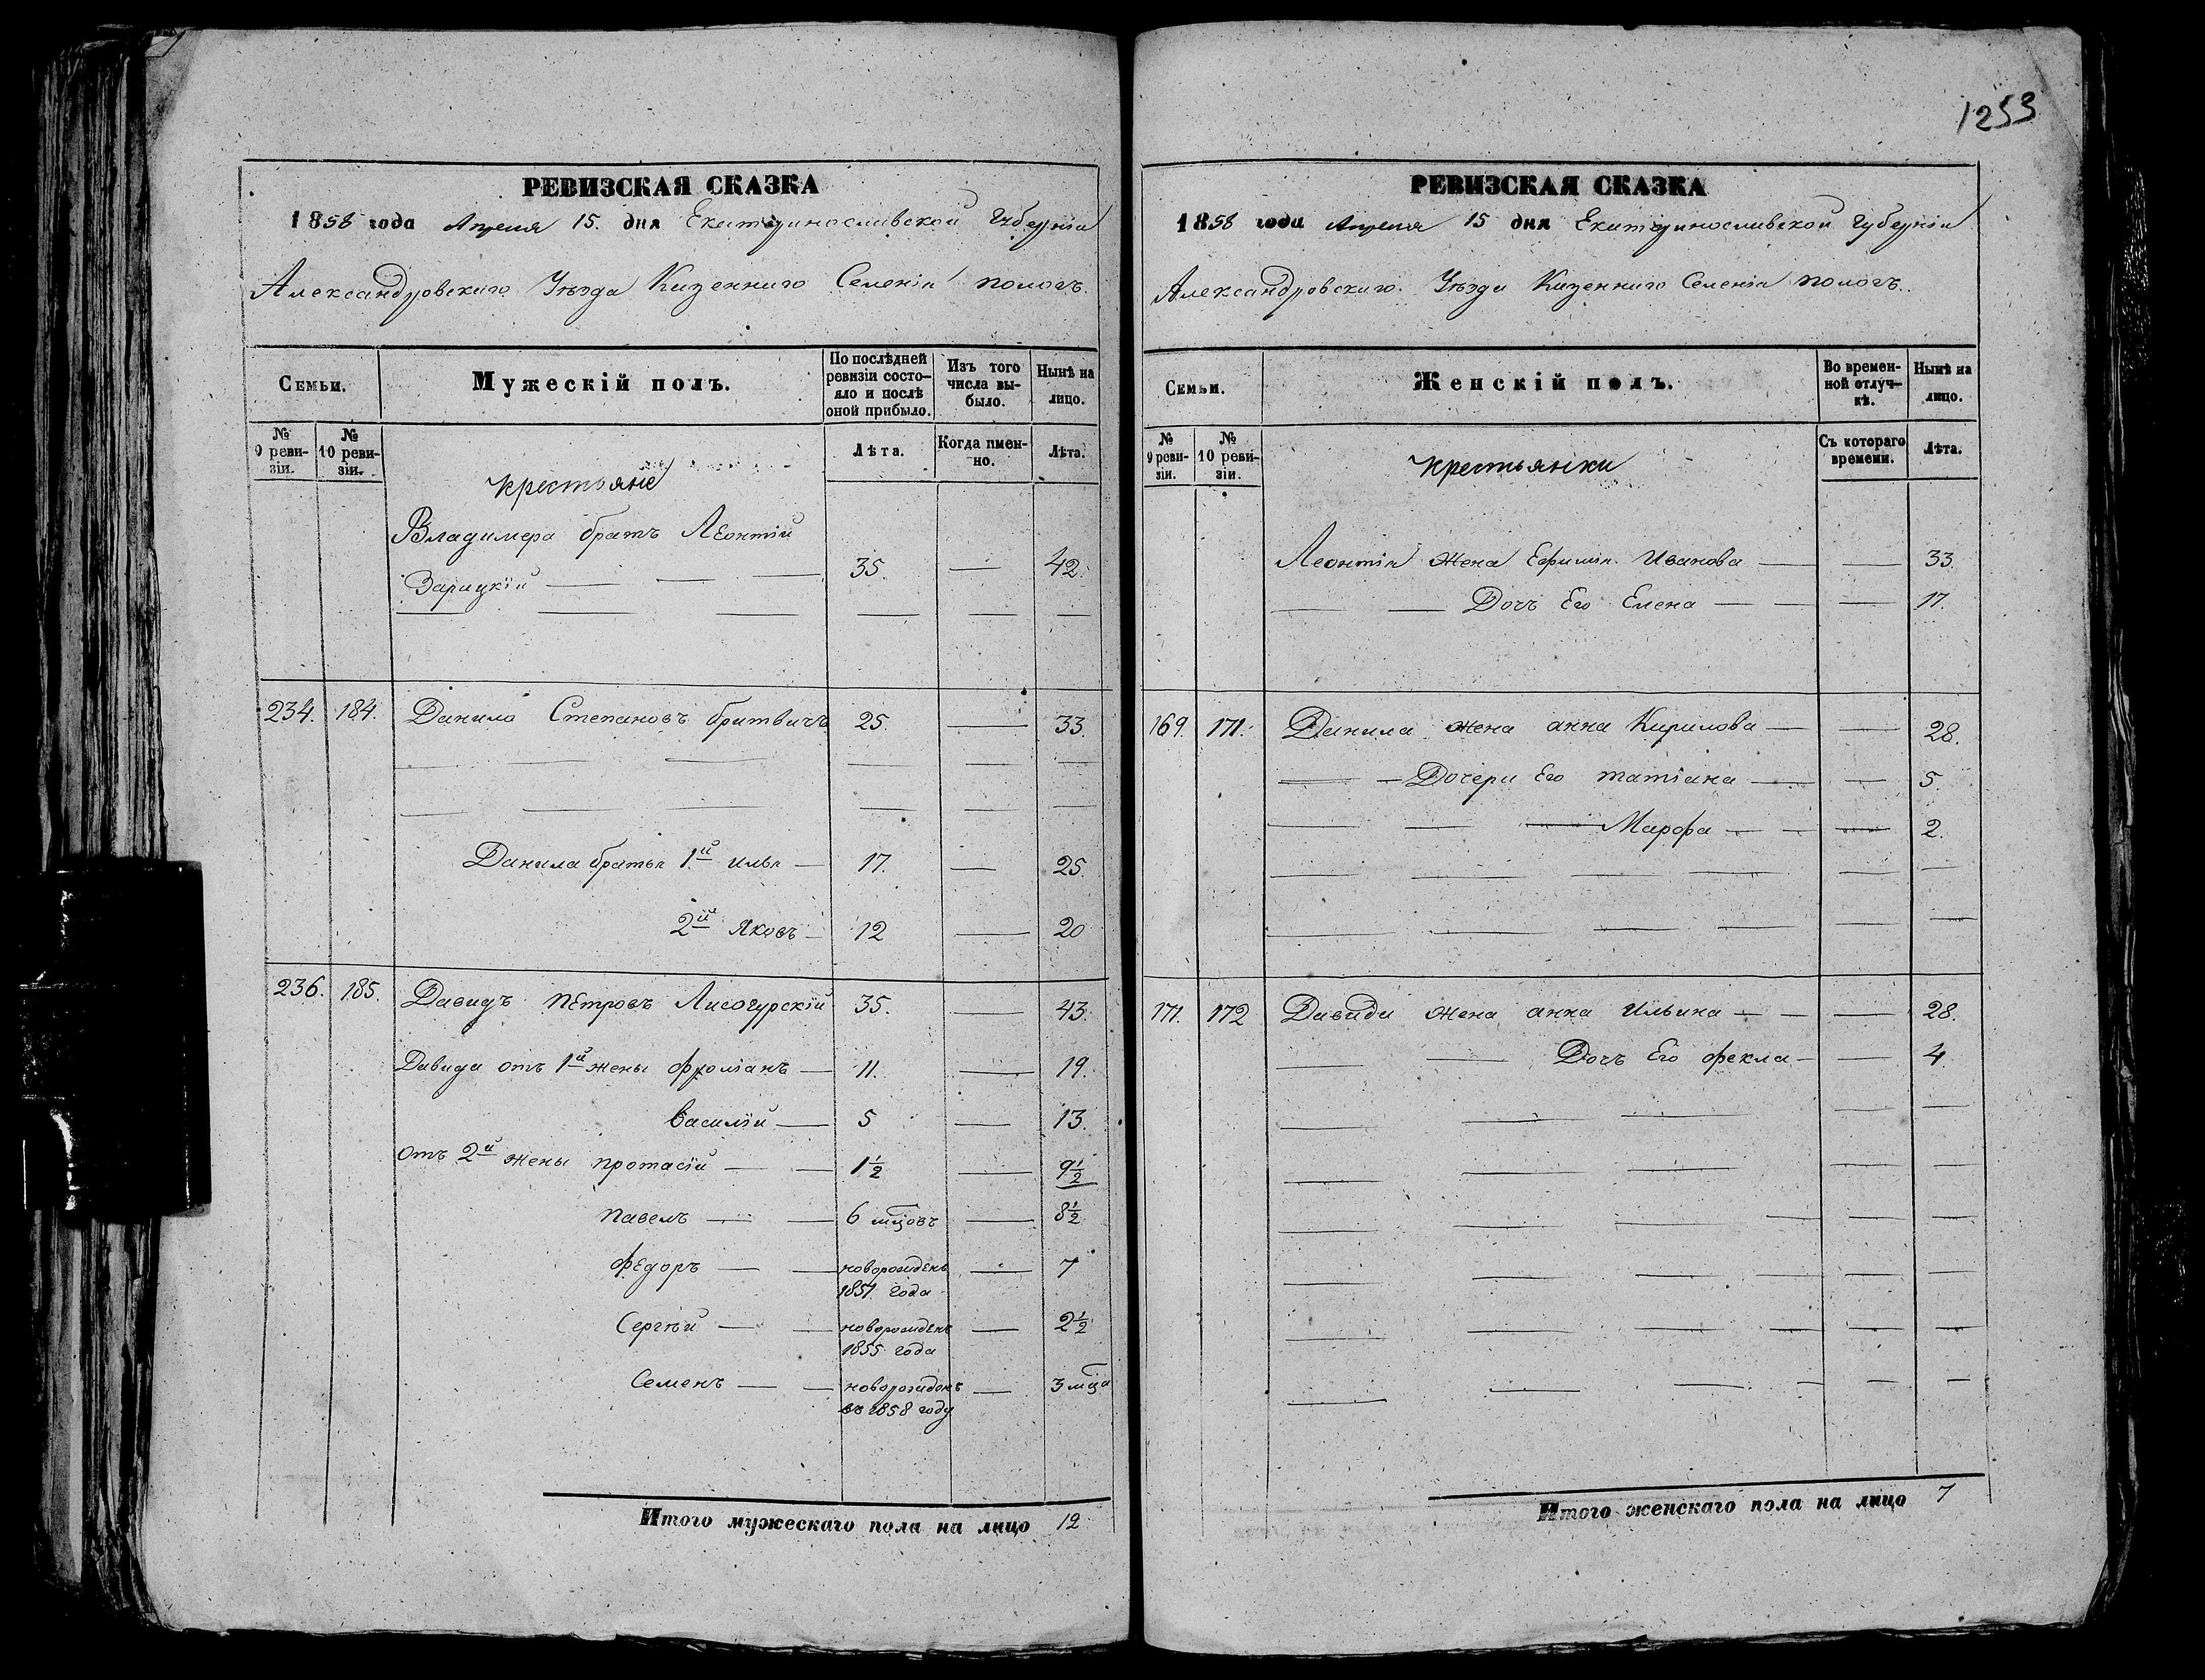 1253
РЕВИЗСКАЯ СКАЗКА
1858 года Апреля 15. дня Екатеринославской Губерніи
Александровскаго Уѣзда Казеннаго Селенія пологъ.
Семьи.
Мужескій полъ.
По послѣдней ревизіи состояло и послѣ оной прибыло.
Изъ того числа выбыло.
Нынѣ на лицо.
№ 9 ревизіи.
№ 10 ревизіи.
Лѣта.
Когда имен-но.
Лѣта.
крестьяне
Владимера братъ Леонтій
Зарицкій — — — 35. — 42.
234. 184. Данило Степановъ бритвичъ 25. — 33.
Данила братья 1й илья — 17. — 25.
2й Яковъ — 12 — 20
236. 185. Давидъ Петровъ Лисогурскій 35. — 43.
Давида отъ 1й жены фроліанъ — 11. — 19.
Василій — 5 — 13.
отъ 2й жены протасій — — 1½ — 9½
павелъ — — 6 мцовъ — 8½
федоръ — — новорожденъ — 7
1851 года
Сергѣй — — новорожденъ — 2½
1855 года
Семенъ — — новорожденъ — 3 мца
въ 1858 году
Итого мужескаго пола на лицо 12
РЕВИЗСКАЯ СКАЗКА
1858 года Апреля 15 дня Екатеринославской Губерніи
Александровскаго Уѣзда Казеннаго Селенія пологъ.
Семьи.
Женскій полъ.
Во времен-ной отлуч-кѣ.
Нынѣ на лицо.
№ 9 ревизіи.
№ 10 ревизіи.
Съ котораго времени.
Лѣта.
крестьянки
Леонтія жена Ефимія Иванова — — 33.
— — Дочь Его Елена — — — 17.
169. 171. Данила жена анна Кирилова — — 28.
— — Дочери Его татіана — — 5.
— — — Марфа — — — 2.
171. 172 Давида жена анна Ильина — — — 28.
— — Дочь Его фекла — — 4.
Итого женскаго пола на лицо 7